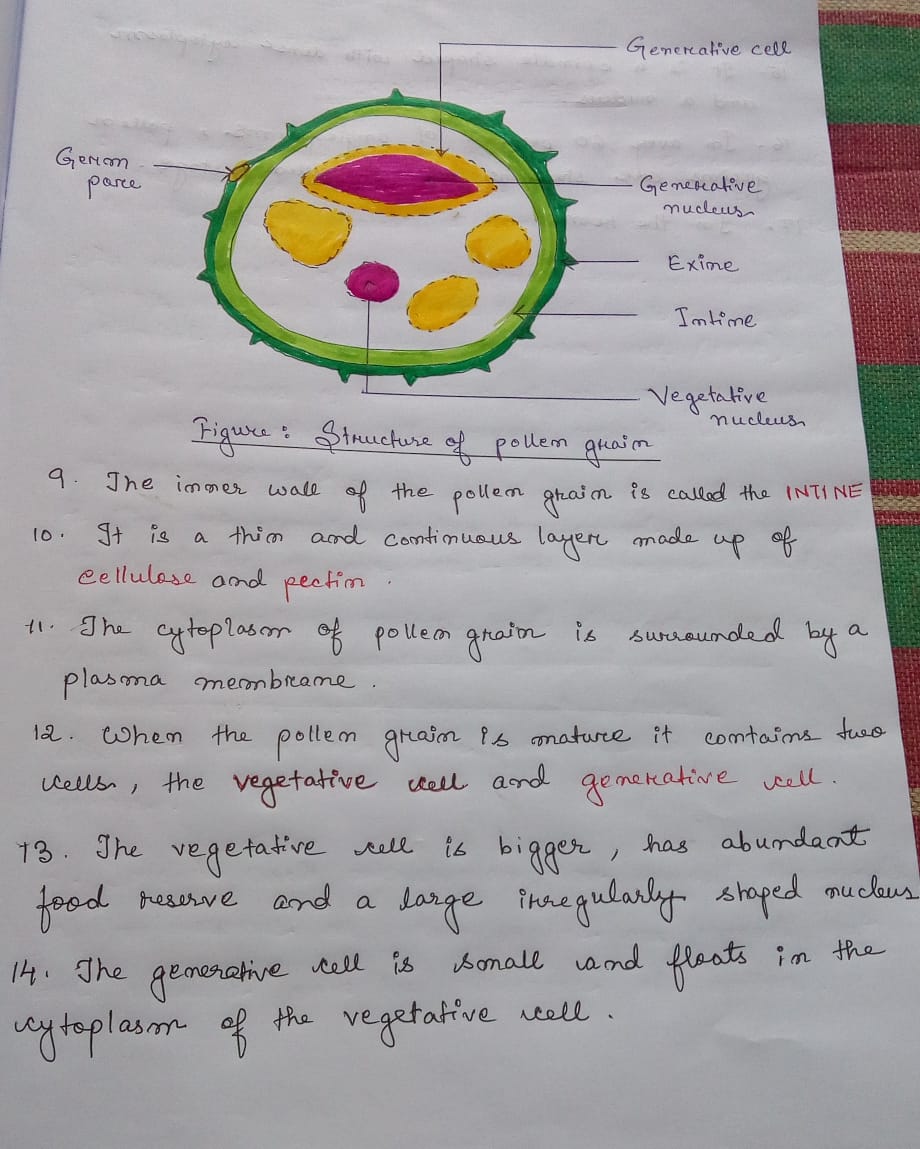 Generative cell
Germ
pore
Generative
nucleus
Exine
Intine
Vegetative
nucleus
Figure: Structure of pollen grain
9. The inner wall of the pollen grain is called the INTINE
10. It is a thin and continuous layer made up of
cellulose and pectin.
11. The cytoplasm of pollen grain is surrounded by a
plasma membrane.
12. When the pollen grain is mature it contains two
cells, the vegetative cell and generative cell.
13. The vegetative cell is bigger, has abundant
food reserve and a large irregularly shaped nucleus
14. The generative cell is small and floats in the
cytoplasm of the vegetative cell.